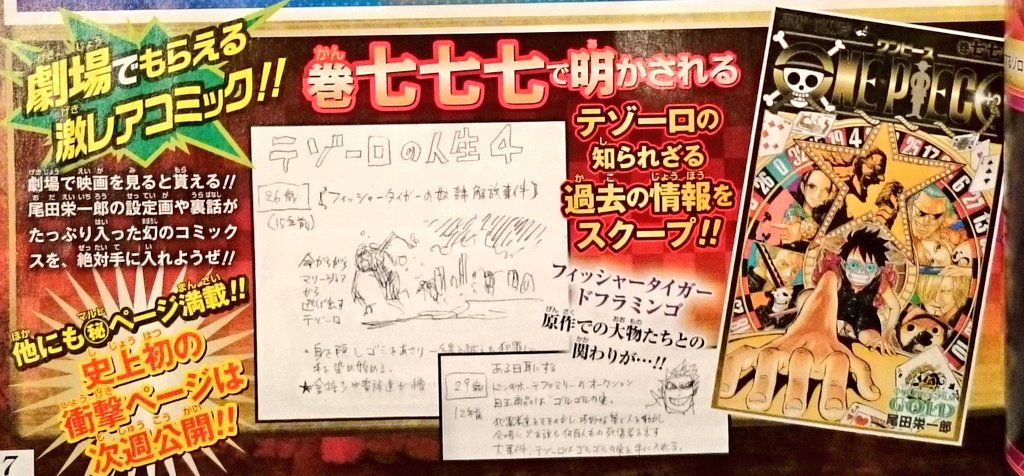 劇場でもらえる
激レアコミック!!
劇場で映画を見ると貰える!!
尾田栄一郎の設定画や裏話が
たっぷり入った幻のコミック
スを、絶対手に入れようぜ!!
他にも㊙ページ満載!!
史上初の
衝撃ページは
次週公開!!
7
巻七七七で明かされる
テゾーロの
知られざる
過去の情報を
スクープ!!
フィッシャータイガー
ドフラミンゴ
原作での大物たちとの
関わりが…!!
テゾーロの人生4
26歳
『フィッシャータイガーの奴隷解放事件』
(15年前)
命からがら
マリージョア
から
逃げ出す
テゾーロ
★身を隠しゴミをあさり
手を染め始める。
★金持ちや
29歳
12年前
ある日耳にする
ドンキホーテファミリーのオークション
目玉商品は"ゴルゴルの実"。
大事件、テゾーロはゴルゴルの実を手に入れる。
ワンピース
巻七七七
ONE PIECE
GOLD
尾田栄一郎